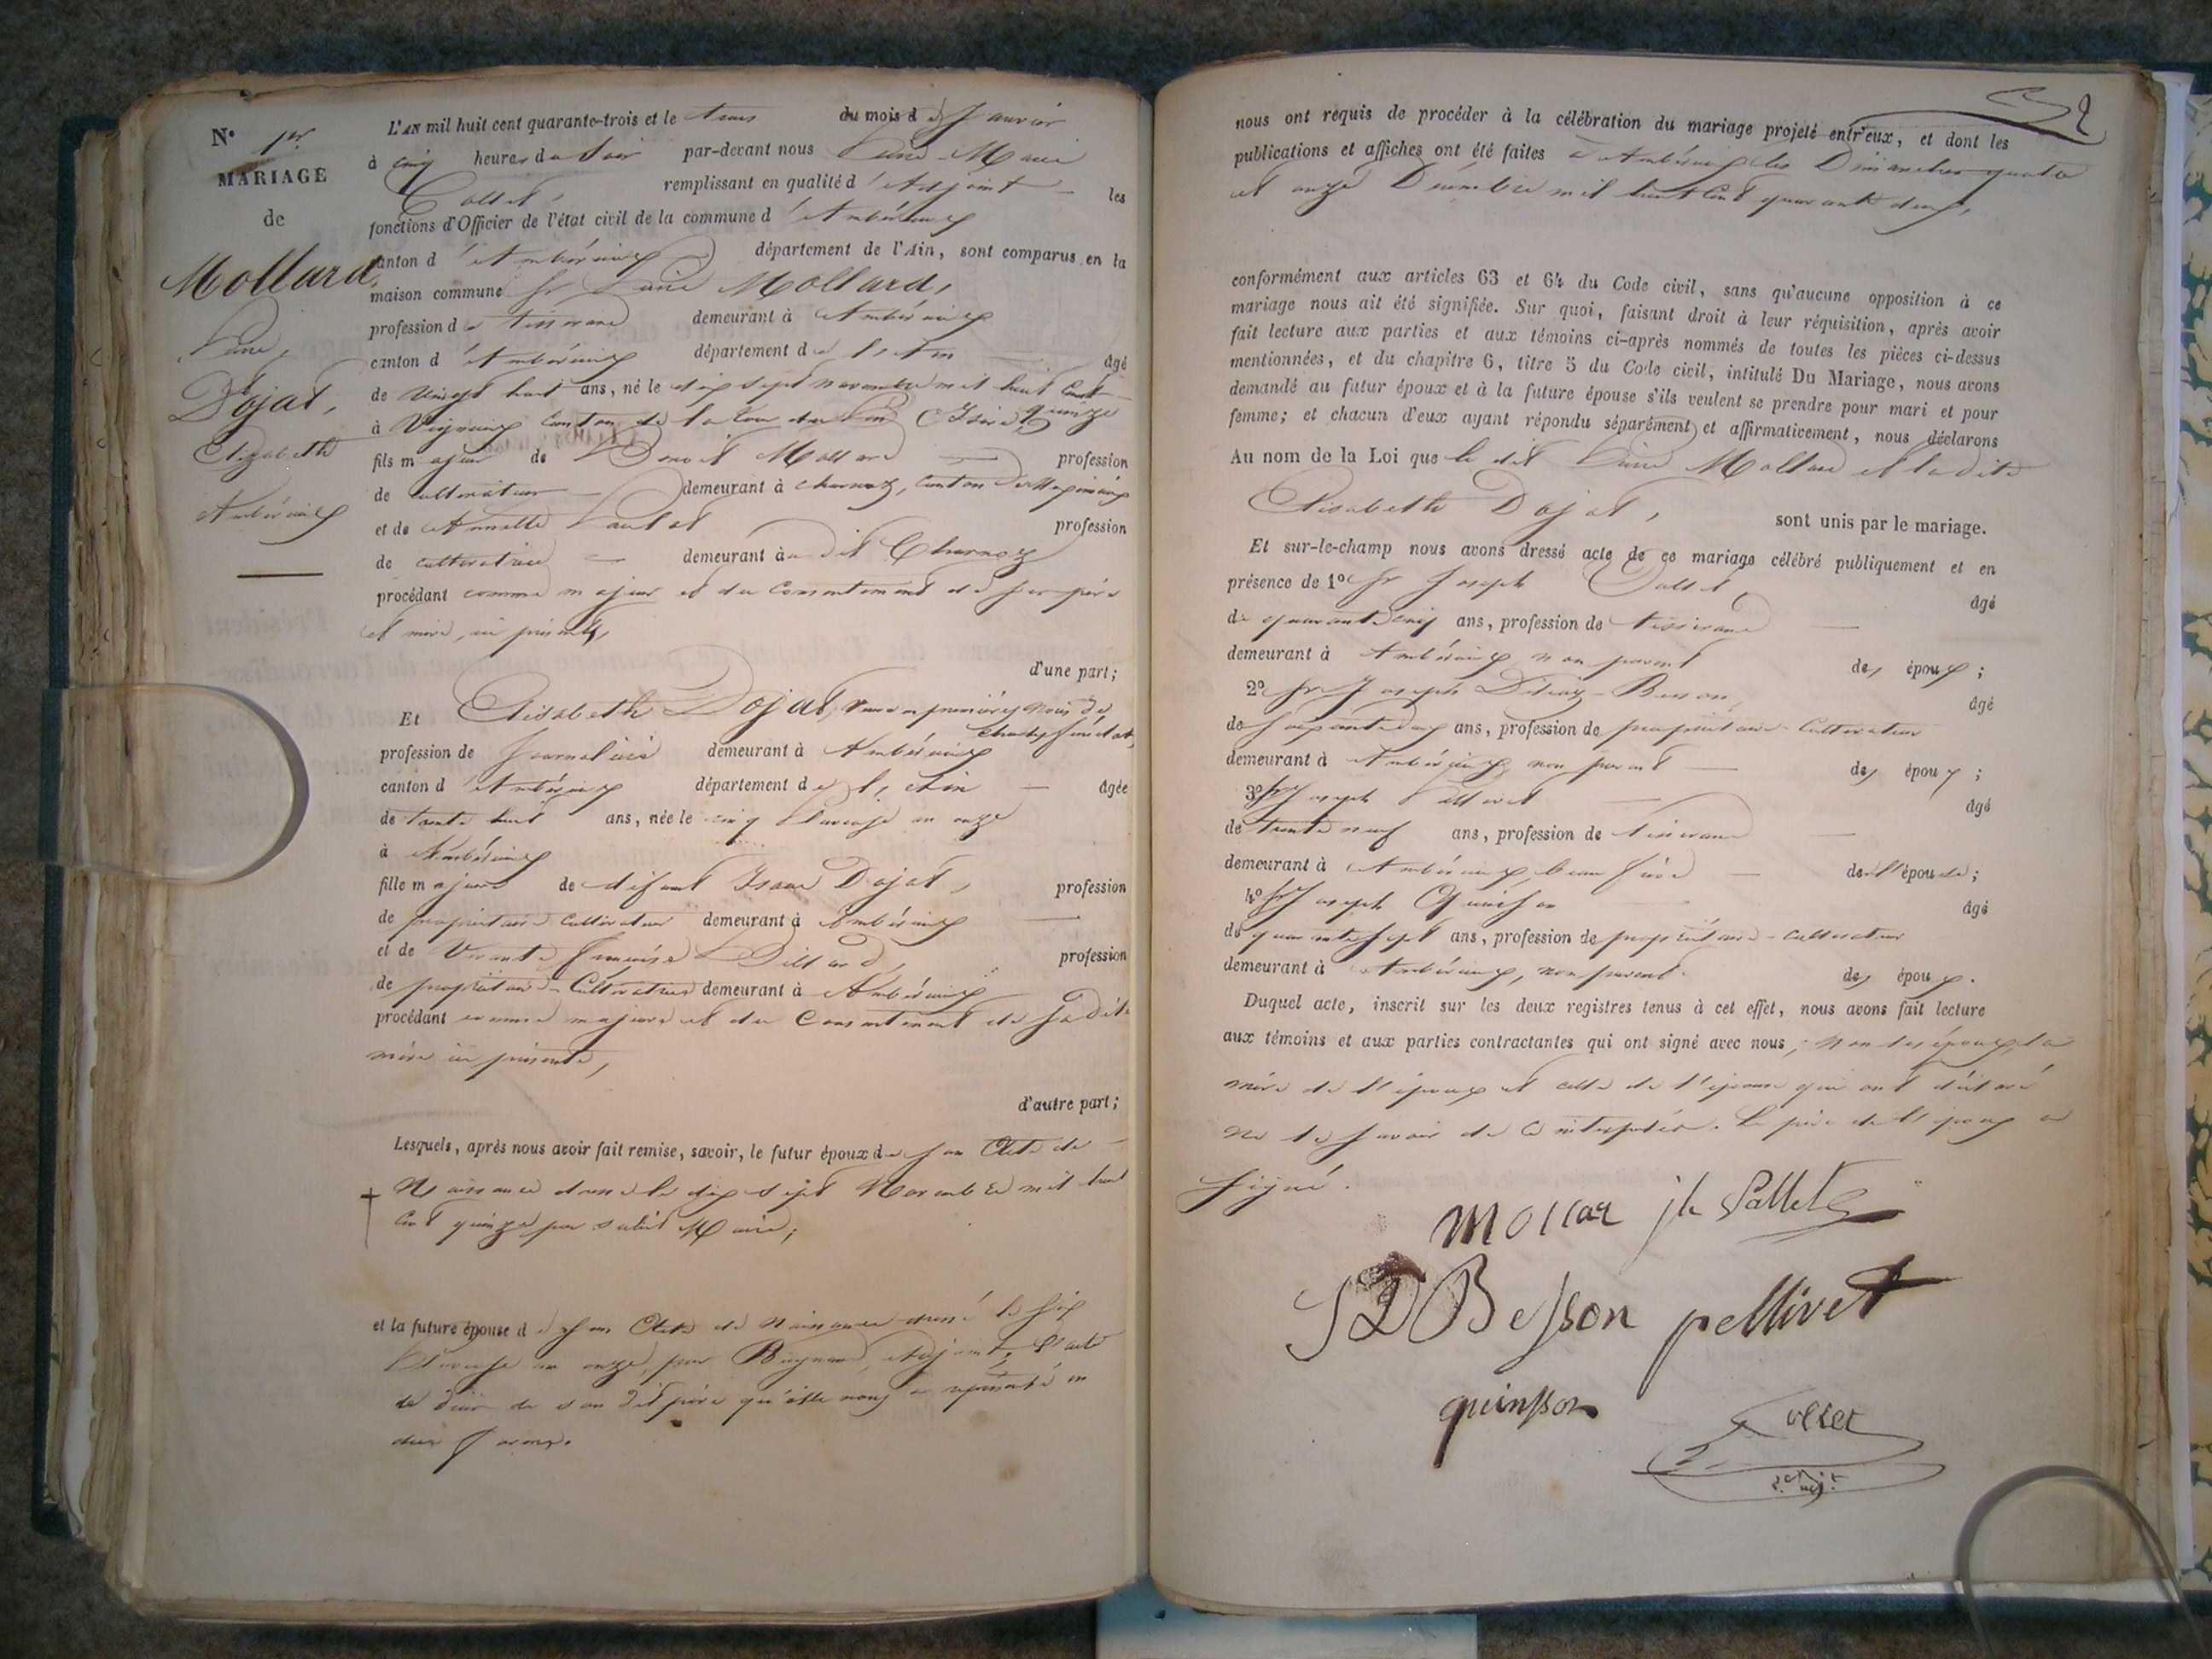 N° 1er
MARIAGE
de
Mollard,
Pierre,
Dojat,
Elizabeth
Ambérieux
L'AN mil huit cent quarante-trois et le trois du mois de Janvier
à cinq heures du soir par-devant nous Pierre-Marie
Collet, remplissant en qualité d'Adjoint les
fonctions d'Officier de l'état civil de la commune d'Ambérieux
canton d'Ambérieux département de l'Ain, sont comparus en la
maison commune Sr Pierre Mollard,
profession de tisserand demeurant à Ambérieux
canton d'Ambérieux département de l'Ain âgé
de vingt huit ans, né le dix sept novembre mil huit cent quinze
à canton de la tour du Pin (Isère)
fils majeur de Benoit Mollard profession
de cultivateur demeurant à Charnoz, canton de Meximieux
et de profession
de cultivatrice demeurant audit Charnoz
procédant comme majeur et du consentement de ses père
et mère, ici présents,
d'une part;
Et Elisabeth Dojat, veuve en premières noces de
profession de Journalière demeurant à Ambérieux
canton d'Ambérieux département de l'Ain âgée
de trente huit ans, née le cinq Pluviose an onze
à Ambérieux
fille majeure de défunt Isaac Dojat, profession
de propriétaire cultivateur demeurant à Ambérieux
et de vivante Françoise profession
de propriétaire-Cultivatrice demeurant à Ambérieux
procédant comme majeure et du Consentement de sadite
mère ici présente,
d'autre part;
Lesquels, après nous avoir fait remise, savoir, le futur époux de son Acte de
Naissance dressé le dix sept Novembre mil huit
cent quinze par Maire;
et la future épouse de son Acte de Naissance dressé le six
Pluviose an onze, par Adjoint, l'acte
de décès de son dit père qu'elle nous a représenté en
due forme.
2
nous ont requis de procéder à la célébration du mariage projeté entr'eux, et dont les
publications et affiches ont été faites à Ambérieux les Dimanches quatre
et onze Décembre mil huit cent quarante deux,
conformément aux articles 63 et 64 du Code civil, sans qu'aucune opposition à ce
mariage nous ait été signifiée. Sur quoi, faisant droit à leur réquisition, après avoir
fait lecture aux parties et aux témoins ci-après nommés de toutes les pièces ci-dessus
mentionnées, et du chapitre 6, titre 5 du Code civil, intitulé Du Mariage, nous avons
demandé au futur époux et à la future épouse s'ils veulent se prendre pour mari et pour
femme; et chacun d'eux ayant répondu séparément et affirmativement, nous déclarons
Au nom de la Loi que le dit Pierre Mollard et la dite
Elisabeth Dojat, sont unis par le mariage.
Et sur-le-champ nous avons dressé acte de ce mariage célébré publiquement et en
présence de 1° Sr Joseph Pallet, âgé
de quarante cinq ans, profession de tisserand
demeurant à Ambérieux non parent des époux;
2° Sr Joseph Besson, âgé
de soixante deux ans, profession de propriétaire-Cultivateur
demeurant à Ambérieux, non parent des époux;
3° Sr Joseph Pellivet âgé
de trente neuf ans, profession de tisserand
demeurant à Ambérieux, beau frère de l'épouse;
4° Sr Joseph Quinson âgé
de quarante sept ans, profession de propriétaire-cultivateur
demeurant à Ambérieux, non parent des époux.
Duquel acte, inscrit sur les deux registres tenus à cet effet, nous avons fait lecture
aux témoins et aux parties contractantes qui ont signé avec nous, non les époux, la
mère de l'époux et celle de l'épouse qui ont déclaré
ne le savoir de ce interpellés. Le père de l'époux a
signé.
mollar jh Pallet
JD Besson pellivet
quinson
Collet
2e adjt